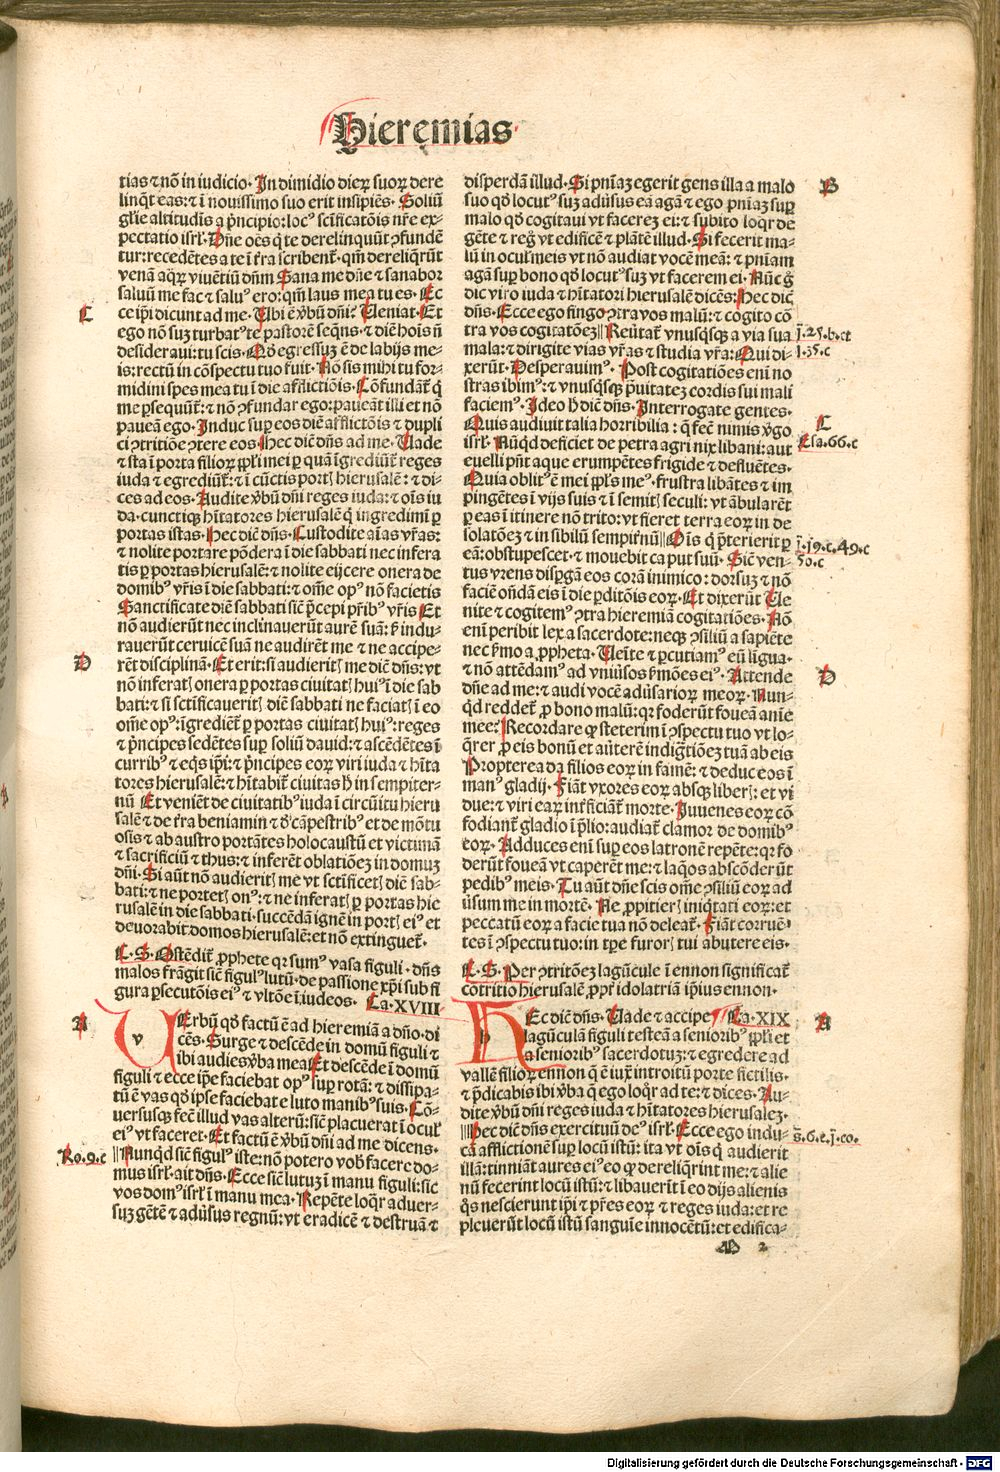 Hieremias
tias ⁊ nō in iudicio. In dimidio dieꝝ suoꝝ dere
linq̄t eas: ⁊ ī nouissimo suo erit insipiēs. Soliū
gl̄ie altitudīs a p̄ncipio: locꝰ sc̄ificatōis nr̄e ex⸗
pectatio isrl̄. Dn̄e oēs q̄ te derelinquūt ↄfundē
tur: recedētes a te ī t̄ra scribent̄. qm̄ dereliq̄rūt
venā aqꝝ viuētiū dn̄m Sana me dn̄e ⁊ sanabor
saluū me fac ⁊ saluꝰ ero: qm̄ laus mea tu es. Ec
C
ce ip̄i dicunt ad me. Vbi ē v̄bū dn̄i? Ueniat. Et
ego nō suꝫ turbatꝰ te pastorē seq̄ns. ⁊ diē hoīs n̄
desideraui: tu scis. Qd̄ egressuꝫ ē de labijs me⸗
is: rectū in cōspectu tuo fuit. Nō sis mihi tu for⸗
midini spes mea tu ī die afflictiōis. Cōfundāt̄ q̄
me ꝑsequūt̄: ⁊ nō ↄfundar ego: paueāt illi et nō
paueā ego. Induc suꝑ eos diē afflictōis ⁊ dupli
ci ↄtritiōe ↄtere eos. Hec diē dn̄s ad me. Uade
⁊ sta ī porta filioꝝ ppl̄i mei ꝑ quā īgrediūt̄ reges
iuda ⁊ egrediūt̄: ⁊ ī cūctis portꝭ hierusalē: ⁊ di⸗
ces ad eos. Audite v̄bū dn̄i reges iuda: ⁊ oīs iu
da. cunctiqꝫ hītatores hierusalē q̄ ingredimī ꝑ
portas istas. Hec diē dn̄s. Custodite aīas vr̄as:
⁊ nolite portare pōdera ī die sabbati nec infera
tis ꝑ portas hierusalē: ⁊ nolite eijcere onera de
domibꝰ vr̄is ī die sabbati: ⁊ om̄e opꝰ nō facietis
Sanctificate diē sabbati sic̄ p̄cepi pr̄ibꝰ vr̄is Et
nō audierūt nec inclinauerūt aurē suā: s̄ indu⸗
rauerūt ceruicē suā ne audirēt me ⁊ ne accipe⸗
D
rēt disciplinā. Et erit: si audieritꝭ me diē dn̄s: vt
nō inferatꝭ onera ꝑ portas ciuitatꝭ huiꝰ ī die sab
bati: ⁊ si sctificaueritꝭ diē sabbati ne faciatꝭ ī eo
om̄e opꝰ: īgrediēt̄ ꝑ portas ciuitatꝭ huiꝰ: reges
⁊ p̄ncipes sedētes suꝑ soliū dauid: ⁊ ascēdētes ī
curribꝰ ⁊ eqs ip̄i: ⁊ p̄ncipes eoꝝ viri iuda ⁊ hīta
tores hierusalē: ⁊ hītabit̄ ciuitas h̄ in sempiter⸗
nū Et veniēt de ciuitatibꝰ iuda ī circūitu hieru
salē ⁊ de t̄ra beniamin ⁊ d̄ cāpestribꝰ et de mōtu
osis ⁊ ab austro portātes holocaustū et victimā
⁊ sacrificiū ⁊ thus: ⁊ inferēt oblatiōeꝫ in domuꝫ
dn̄i. Si aūt nō audieritꝭ me vt sctificetꝭ diē sab⸗
bati: ⁊ ne portetꝭ onꝰ: ⁊ ne inferatꝭ ꝑ portas hie
rusalē in die sabbati. succēdā ignē in portꝭ eiꝰ et
deuorabit domos hierusalē: et nō extinguet̄.
C. S. Ostēdit̄ ꝓphete qr̄ sumꝰ vasa figuli. dn̄s
malos frāgit sic̄ figulꝰ lutū. de passione xp̄i sub fi
gura ꝑsecutōis eiꝰ ⁊ vltōe ī iudeos. Ca. XVIII
A
VErbū qd̄ factū ē ad hieremiā a dn̄o. di
cēs. Surge ⁊ descēde in domū figuli ⁊
ibi audies v̄ba mea Et descēde ī domū
figuli ⁊ ecce ip̄e faciebat opꝰ suꝑ rotā: ⁊ dissipa⸗
tū ē vas qd̄ ipse faciebat e luto manibꝰ suis. Cō⸗
uersusqꝫ fec̄ illud vas alterū: sic̄ placuerat ī oculꝭ
eiꝰ vt faceret. Et factū ē v̄bū dn̄i ad me dicens.
Ro. 9. c
Nunqd̄ sic̄ figulꝰ iste: nō potero vob̄ facere do⸗
mus isrl̄. ait dn̄s. Ecce sic̄ lutuꝫ ī manu figuli: sic
vos domꝰ isrl̄ ī manu mea. Repēte loq̄r aduer⸗
suꝫ gētē ⁊ adūsus regnū: vt eradicē ⁊ destruā ⁊
disperdā illud. Si pn̄iaꝫ egerit gens illa a malo
B
suo qd̄ locutꝰ suꝫ adūsus eā agā ⁊ ego pn̄iaꝫ suꝑ
malo qd̄ cogitaui vt facereꝫ ei: ⁊ subito loq̄r de
gēte ⁊ regꝭ vt edificē ⁊ plātē illud. Si fecerit ma⸗
lū in oculꝭ meis vt nō audiat vocē meā: ⁊ pn̄iam
agā suꝑ bono qd̄ locutꝰ suꝫ vt facerem ei. Nūc g̊
dic viro iuda ⁊ hītatori hierusalē dicēs: Hec dic̄
dn̄s. Ecce ego fingo ↄtra vos malū: ⁊ cogito cō
tra vos cogitatōeꝫ Reūtat̄ vnusqsqꝫ a via sua
j. 25. b. et
mala: ⁊ dirigite vias vr̄as ⁊ studia vr̄a: Qui di⸗
j. 35. c
xerūt. Desperauimꝰ. Post cogitatiōes enī no
stras ibimꝰ: ⁊ vnusqsqꝫ p̄uitateꝫ cordis sui mali
faciemꝰ. Ideo h̄ diē dn̄s. Interrogate gentes.
C
Quis audiuit talia horribilia: q̄ fec̄ nimis v̄go
Esa. 66. c
isrl̄. Nūqd̄ deficiet de petra agri nix libani: aut
euelli pn̄t aque erumpētes frigide ⁊ defluētes.
Quia oblitꝰ ē mei ppl̄s meꝰ. frustra libātes ⁊ im
pingētes ī vijs suis ⁊ ī semitꝭ seculi: vt ābularēt
ꝑ eas ī itinere nō trito: vt fieret terra eoꝝ in de
solatōeꝫ ⁊ in sibilū sempit̄nū Oīs q̄ p̄terierit ꝑ
j. 19. c. 49. c
eā: obstupescet. ⁊ mouebit caput suū. Sic̄ ven⸗
50. c
tus vrens disꝑgā eos corā inimico: dorsuꝫ ⁊ nō
faciē on̄dā eis ī die ꝑditōis eoꝝ. Et dixerūt Ue
nite ⁊ cogitemꝰ ↄtra hieremiā cogitatiōes. Nō
enī peribit lex a sacerdote: neqꝫ ↄsiliū a sapiēte
nec s̄mo a ꝓpheta. Ueīte ⁊ ꝑcutiamꝰ eū līgua.
D
⁊ nō attēdamꝰ ad vniūsos s̄mōes eiꝰ. Attende
dn̄e ad me: ⁊ audi vocē adūsarioꝝ meoꝝ. Nun⸗
qd̄ reddet̄ ꝓ bono malū: qr̄ foderūt foueā aīe
mee? Recordare ꝙ steterim ī ↄspectu tuo vt lo⸗
q̄rer ꝓ eis bonū et aūterē indiḡtiōeꝫ tuā ab eis
Propterea da filios eoꝝ in famē: ⁊ deduc eos ī
manꝰ gladij. Fiāt vxores eoꝝ absqꝫ liberꝭ: et vi
due: ⁊ viri eaꝝ int̄ficiāt̄ morte. Juuenes eoꝝ cō
fodiant̄ gladio ī p̄lio: audiat̄ clamor de domibꝰ
eoꝝ. Adduces enī suꝑ eos latronē repēte: qr̄ fo
derūt foueā vt caperēt me: ⁊ laq̄os abscōderūt
pedibꝰ meis. Tu aūt dn̄e scis om̄e ↄsiliū eoꝝ ad
ūsum me in mortē. Ne ꝓpitierꝭ iniq̄tati eoꝝ: et
peccatū eoꝝ a facie tua nō deleat̄. Fiāt corruē⸗
tes ī ↄspectu tuo: in tp̄e furorꝭ tui abutere eis.
C. S. Per ↄtritōeꝫ lagūcule ī ennon significat̄
cōtritio hierusalē ꝓpt̄ idolatriā ip̄ius ennon.
HEc diē dn̄s. Uade ⁊ accipe Ca. XIX
A
lagūculā figuli testeā a senioribꝰ ppl̄i et
a senioribꝰ sacerdotuꝫ: ⁊ egredere ad
vallē filioꝝ ennon q̄ ē iux̄ introitū porte fictilis.
⁊ p̄dicabis ibi v̄ba q̄ ego loq̄r ad te: ⁊ dices. Au⸗
dite v̄bū dn̄i reges iuda ⁊ hītatores hierusaleꝫ.
Hec diē dn̄s exercituū deꝰ isrl̄. Ecce ego indu⸗
s. 6. e. j. co.
cā afflictionē suꝑ locū istū: ita vt oīs q̄ audierit
illā: tinniāt aures eiꝰ eo ꝙ dereliq̄rint me: ⁊ alie
nū fecerint locū istū: ⁊ libauerīt ī eo dijs alienis
q̄s nescierunt ip̄i ⁊ pr̄es eoꝝ ⁊ reges iuda: et re
pleuerūt locū istū sanguīe innocētū: et edifica⸗
AB 2
Digitalisierung gefördert durch die Deutsche Forschungsgemeinschaft - DFG